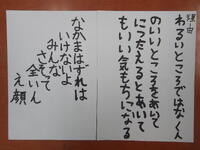 理由
わるいところではなくくん
のいいところをあいて
につたえるとあいて
もいい気もちになる
なかまはずれは
いけないよ
みんな
さそって
全いん
え顔